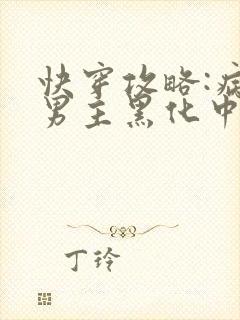 快穿攻略:病
男主黑化中
丁玲